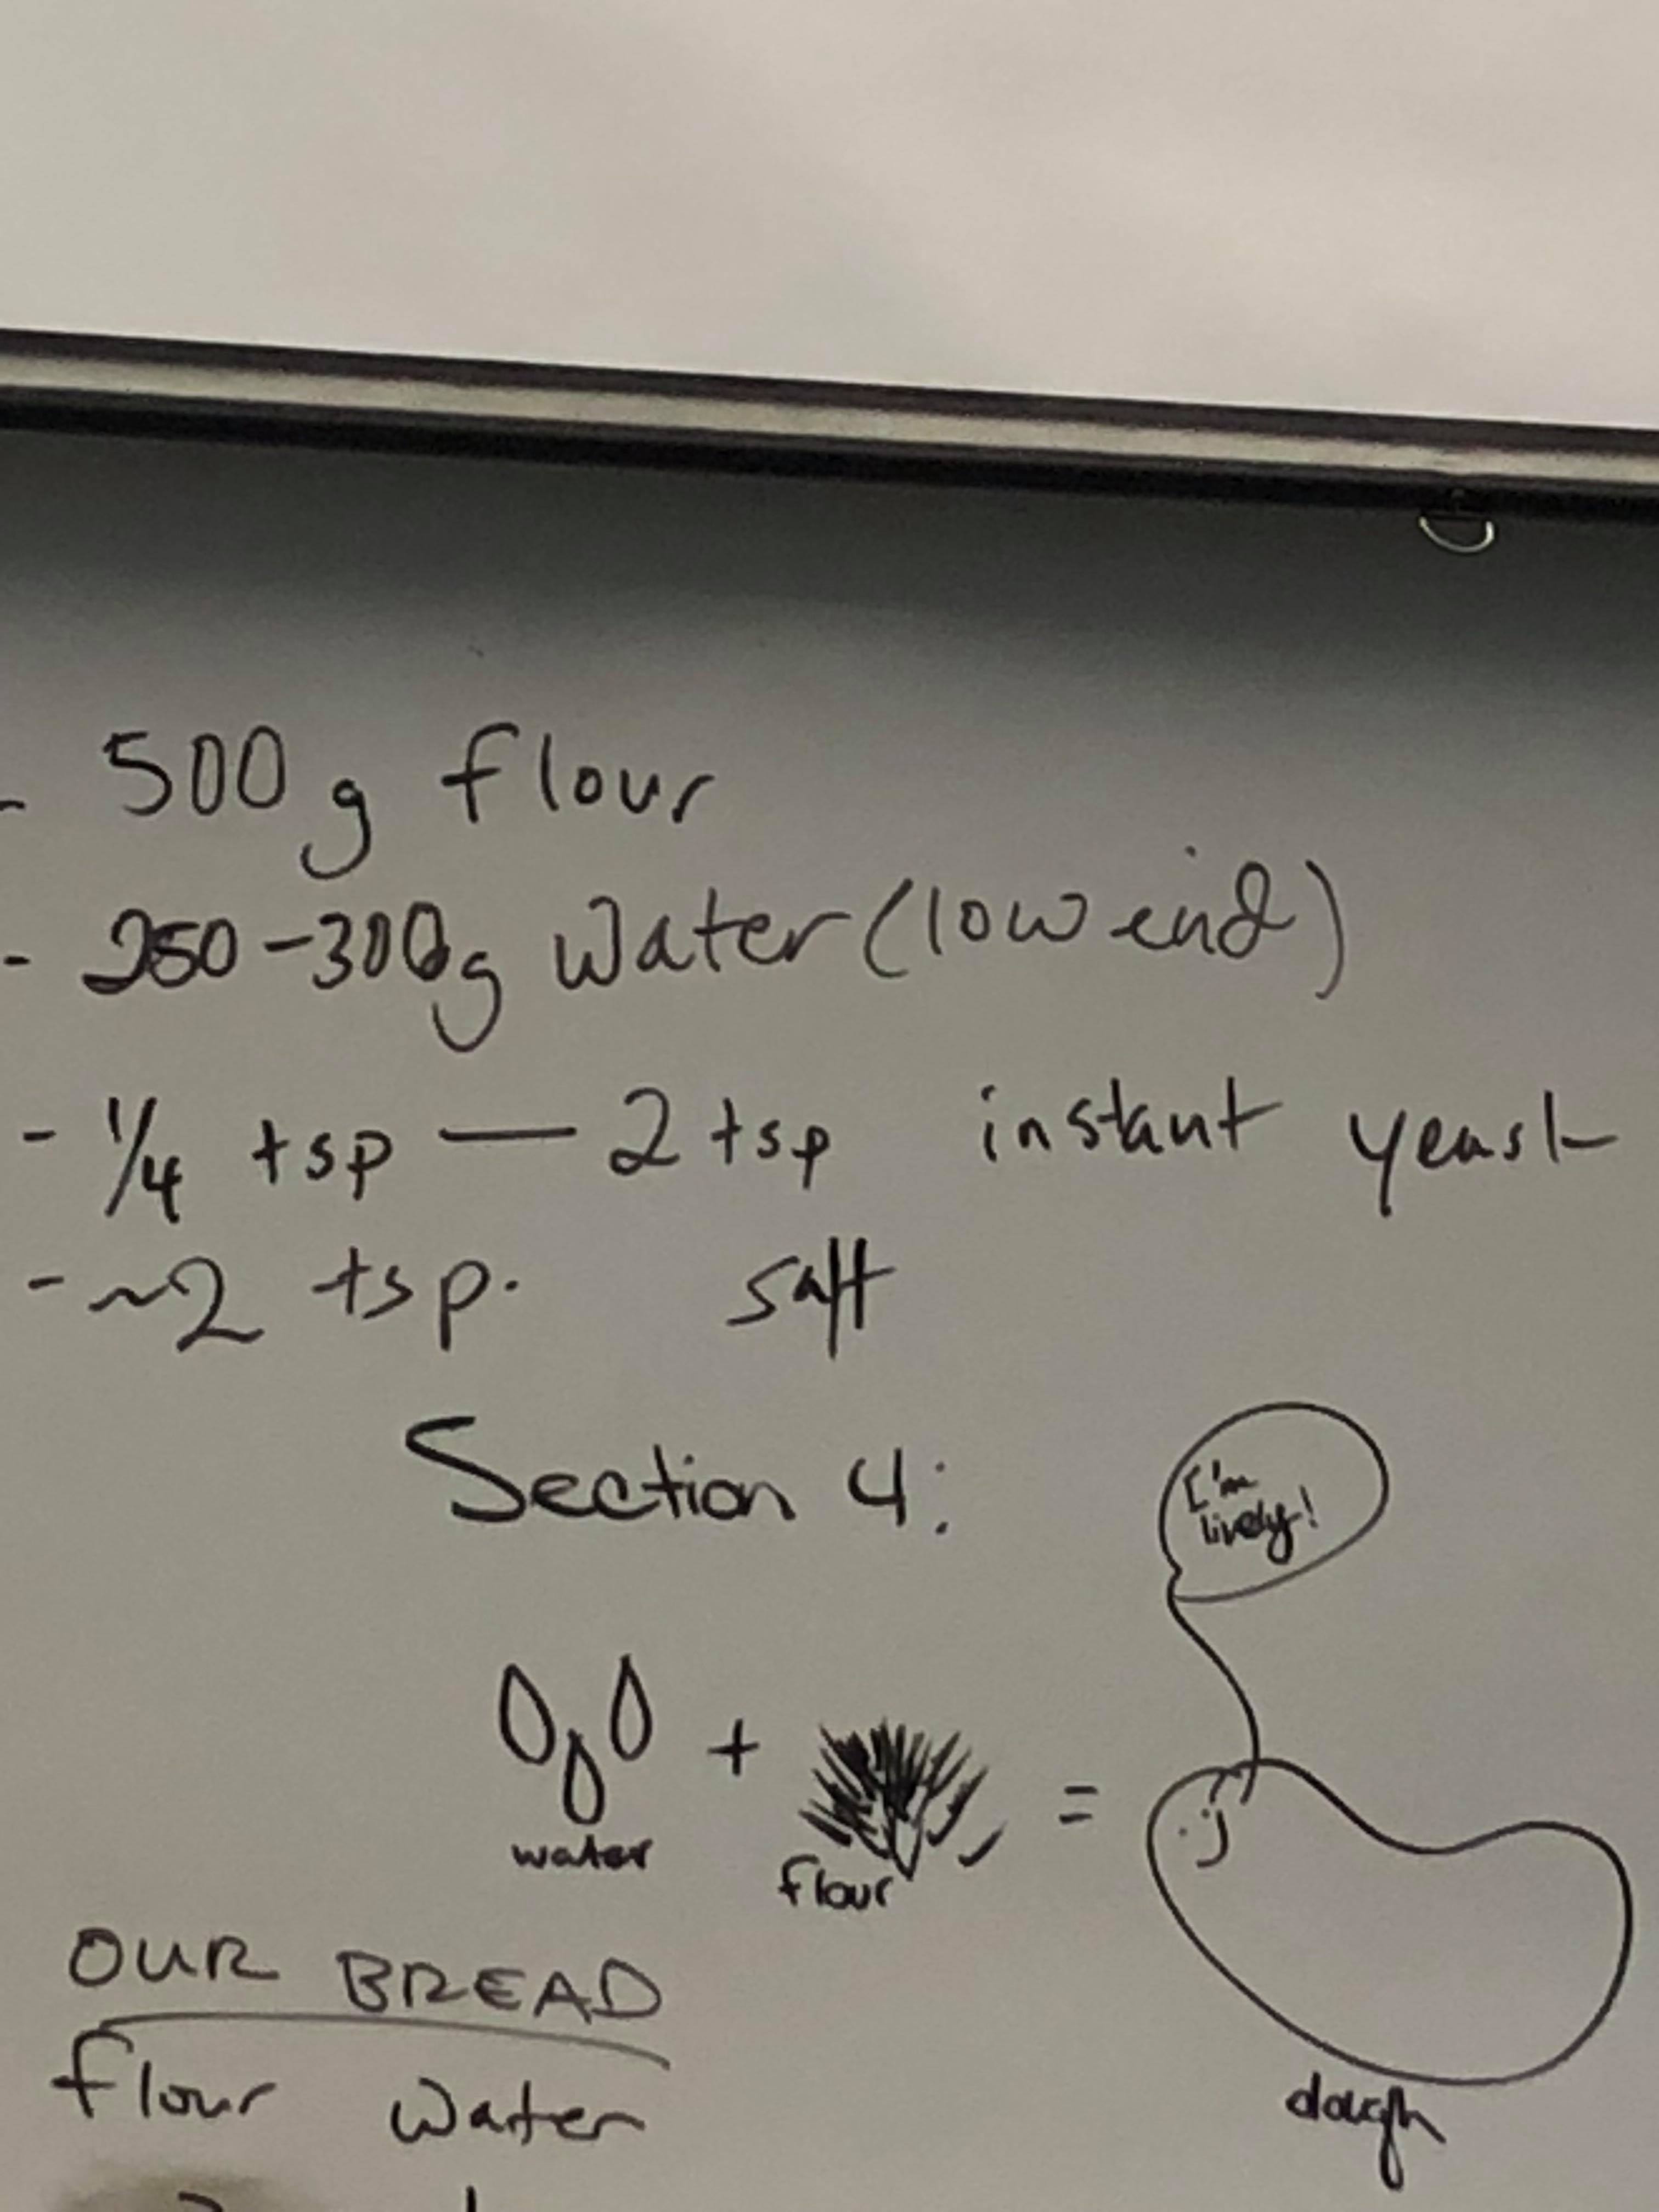 - 500g flour
- 250-300g water (low end)
- 1/4 tsp — 2 tsp instant yeast
- ~2 tsp. salt
Section 4:
I'm
lively!
+ =
water
flour
dough
OUR BREAD
flour water